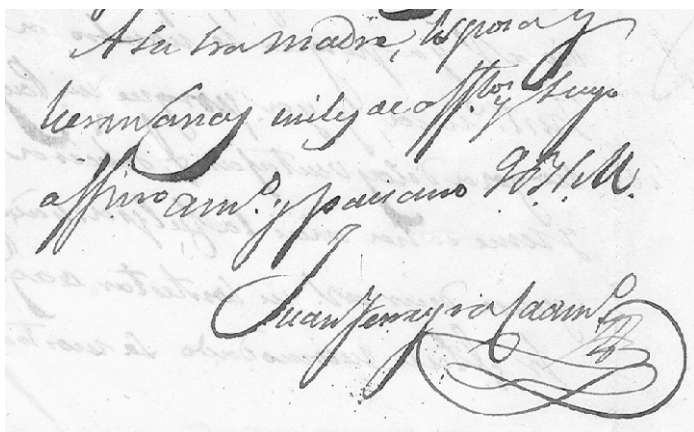 A su Sra madre, Esposa y
hermanas miles de aff.tos y Suyo
affmo am.o y paisano Q.B.S.M.
Juan